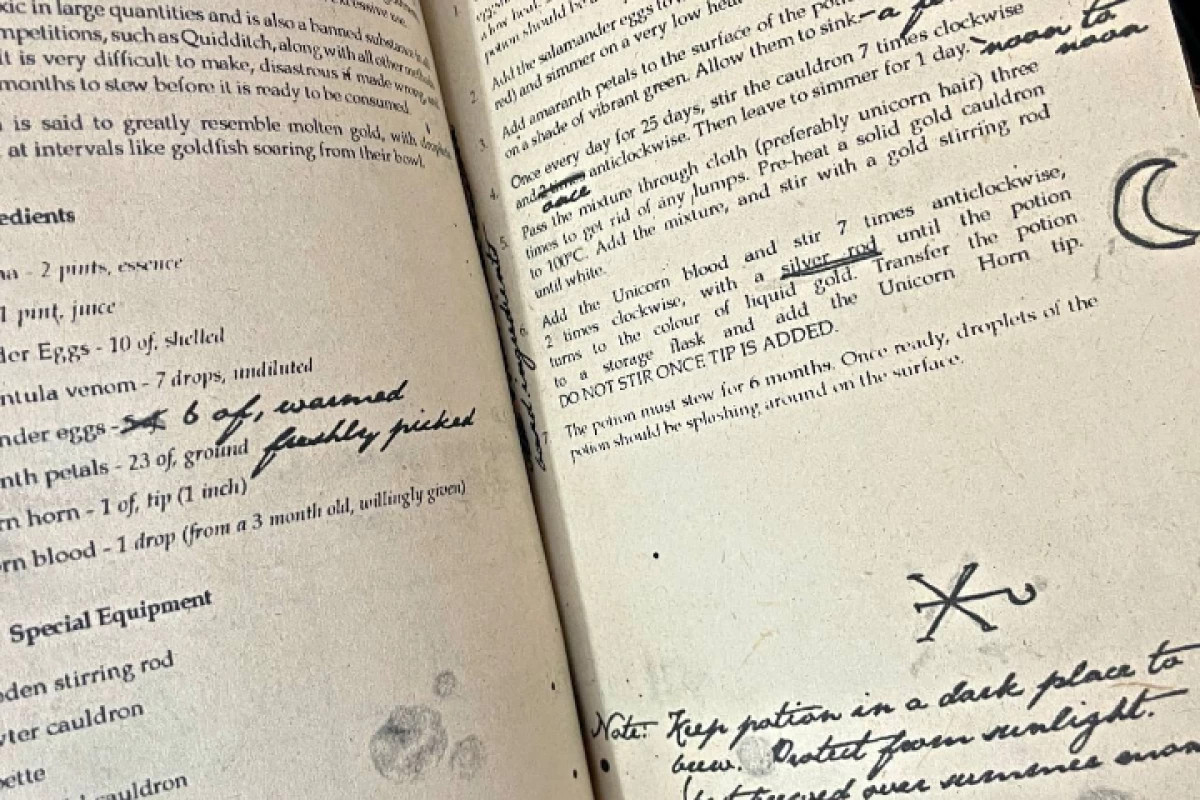 xic in large quantities and is also a banned substance in all
mpetitions, such as Quidditch, along with all other methods
It is very difficult to make, disastrous if made wrong, and
months to stew before it is ready to be consumed.
is said to greatly resemble molten gold, with droplets
at intervals like goldfish soaring from their bowl.
edients
- 2 pints, essence
1 pint, juice
der Eggs - 10 of, shelled
ntula venom - 7 drops, undiluted
nder eggs - 6 of, warmed
nth petals - 23 of, ground freshly picked
rn horn - 1 of, tip (1 inch)
rn blood - 1 drop (from a 3 month old, willingly given)
Special Equipment
den stirring rod
ter cauldron
ette
cauldron
1.
a low heat.
potion should be
2. Add the salamander eggs
red) and simmer on a very low heat
3. Add amaranth petals to the surface of the
on a shade of vibrant green. Allow them to sink - a
4. Once every day for 25 days, stir the cauldron 7 times clockwise
and 2 times once anticlockwise. Then leave to simmer for 1 day. noon to noon
5. Pass the mixture through cloth (preferably unicorn hair) three
times to get rid of any lumps. Pre-heat a solid gold cauldron
to 100°C. Add the mixture, and stir with a gold stirring rod
until white.
6. Add the Unicorn blood and stir 7 times anticlockwise,
2 times clockwise, with a silver rod until the potion
turns to the colour of liquid gold. Transfer the potion
to a storage flask and add the Unicorn Horn tip.
DO NOT STIR ONCE TIP IS ADDED.
7. The potion must stew for 6 months. Once ready, droplets of the
potion should be splashing around on the surface.
Note: Keep potion in a dark place to
brew. Protect from sunlight.
over summer